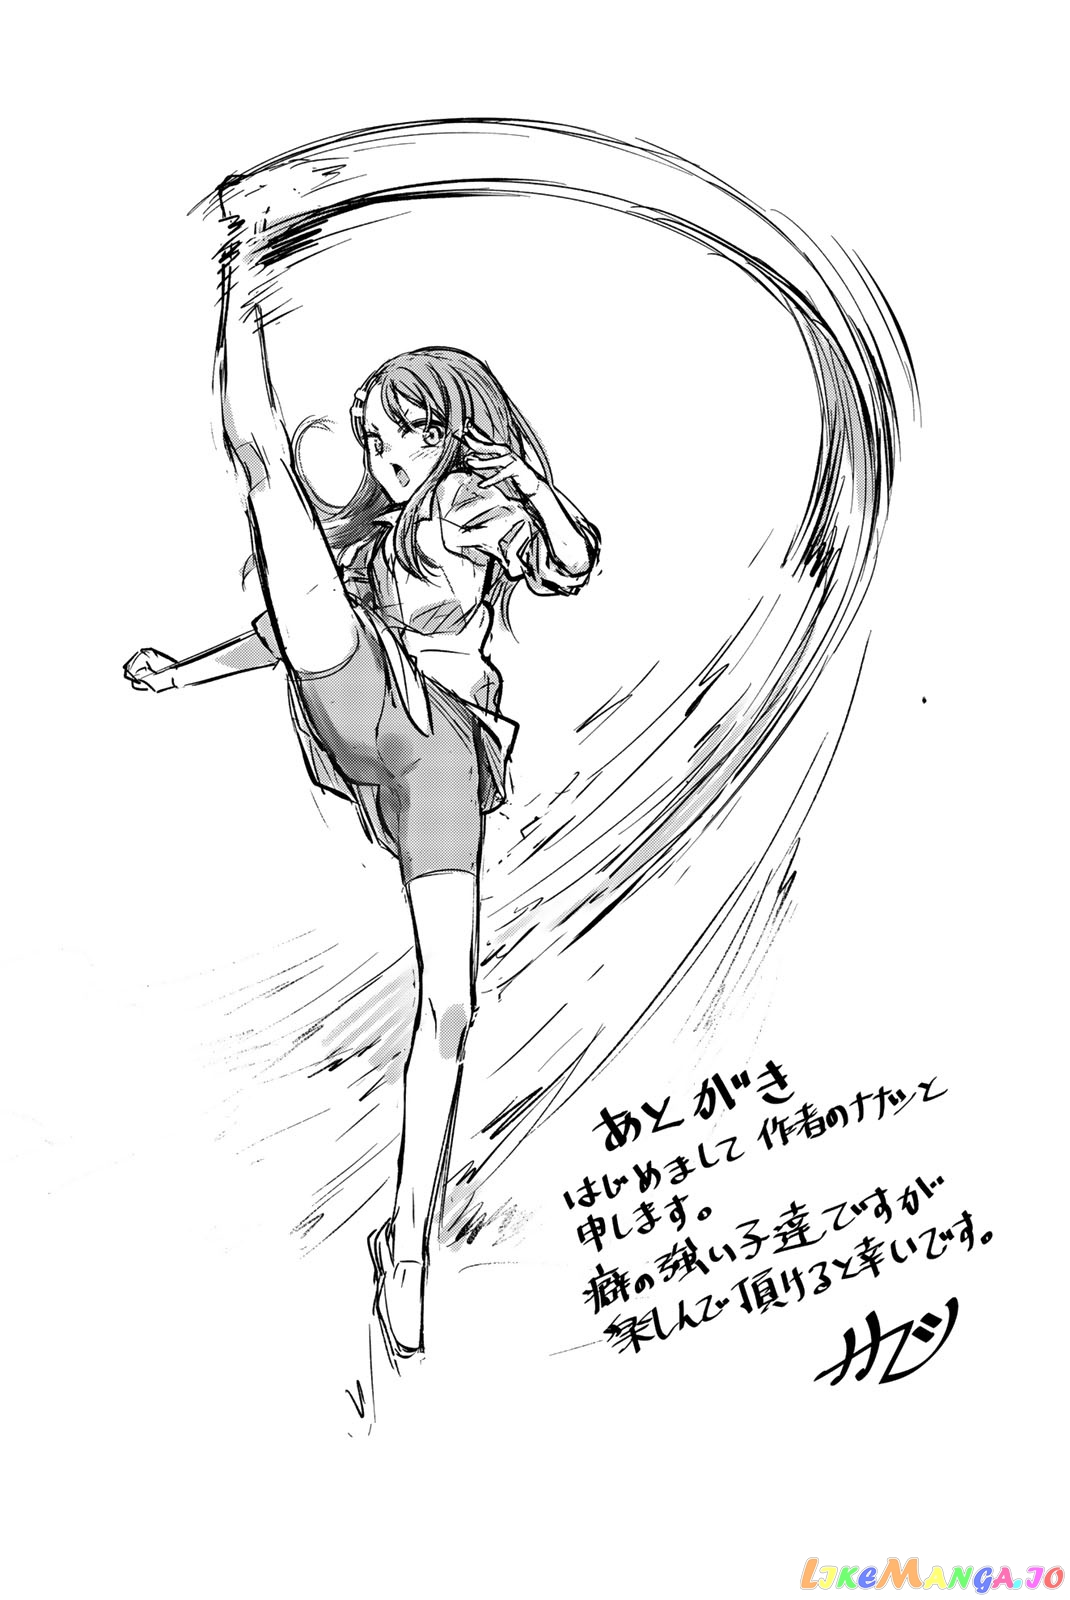 あとがき
はじめまして 作者のナナシと
申します。
癖の強い子達ですが
楽しんで頂けると幸いです。
LIKEMANGA.IO